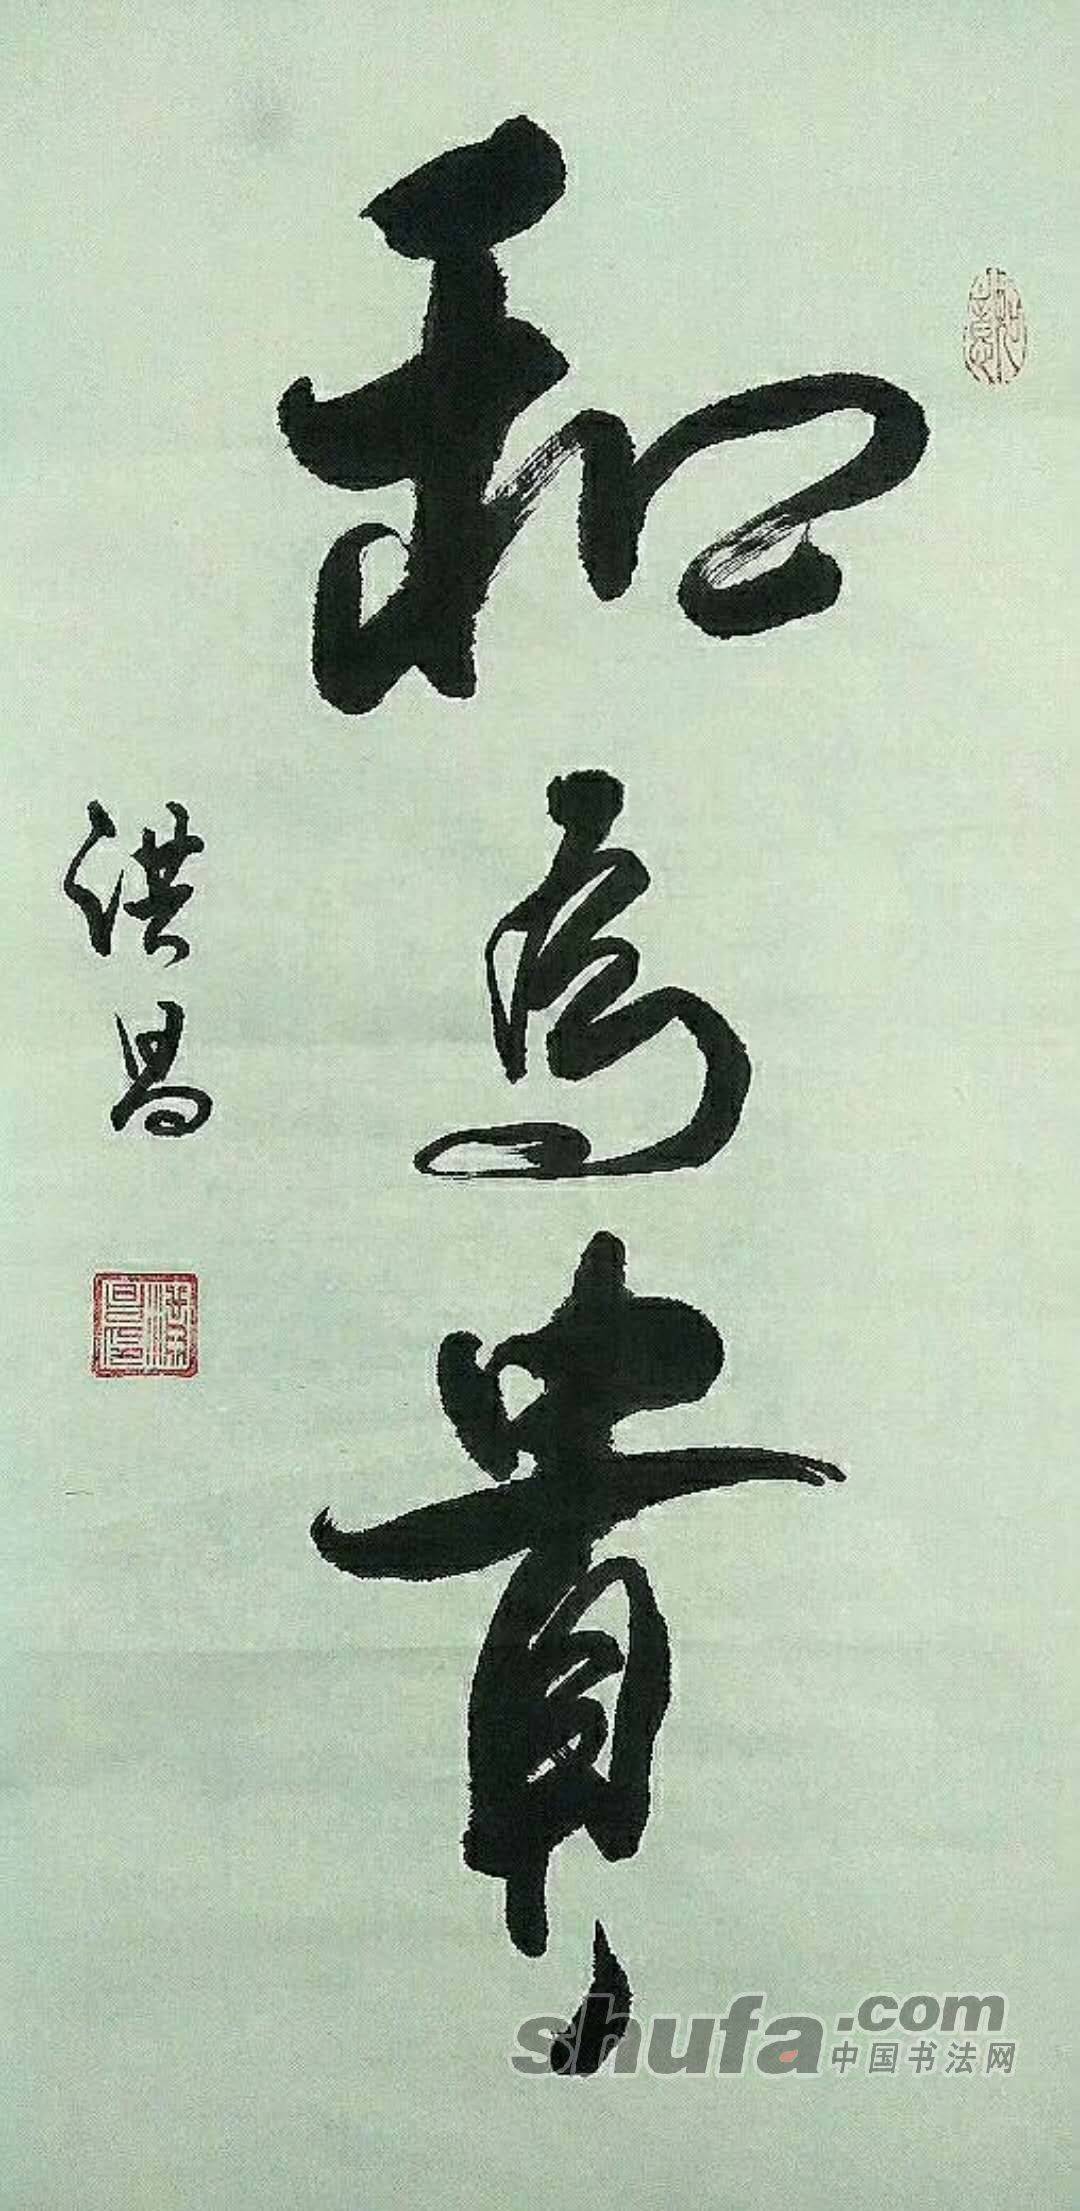 如意
和為貴
洪昌
shufa.com
中国书法网